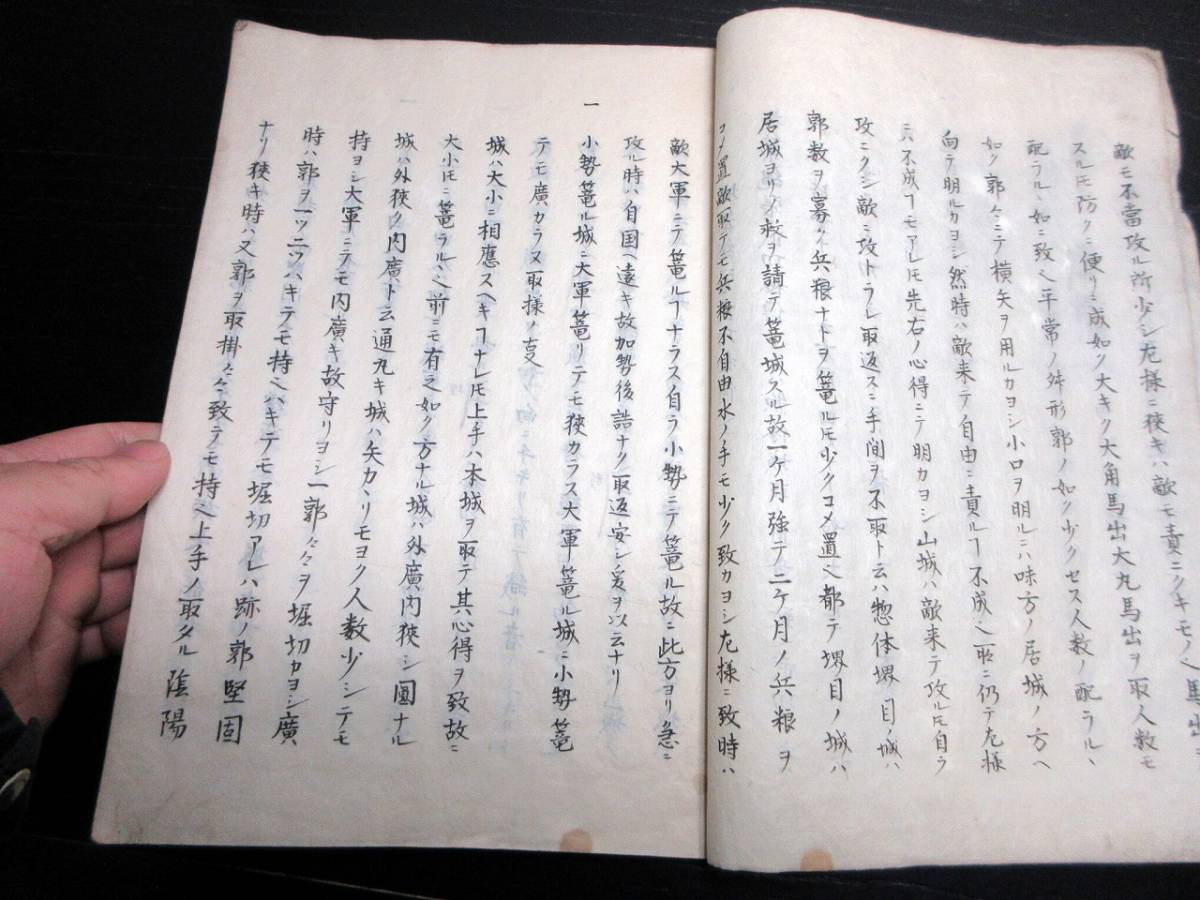 敵モ不當攻ル所少シ左様ニ狭キハ敵モ責ニクキモノ也馬出
スルモ防クニ便リニ成如ク大キク大角馬出大丸馬出ヲ取人数モ
配ラルヽ如ニ致也平常ノ舛形郭ノ如ク少クセス人数ノ配ラルヽ
如ク郭々ニテ横矢ヲ用ルカヨシ小口ヲ明ルニハ味方ノ居城ノ方ヘ
向テ明ルカヨシ然時ハ敵来テ自由ニ責ルヿ不成也取ニ仍テ左様
ニハ不成ヿモアレ𪜈先右ノ心得ニテ明カヨシ山城ハ敵来テ攻ル𪜈自ラ
攻ニクシ敵ニ攻トラレ取返スニ手間ヲ不取ト云ハ惣体堺目ノ城ハ
郭数ヲ寡ク兵粮ナトヲ篭ル𪜈少クコメ置也都テ堺目ノ城ハ
居城ヨリノ救ヲ請テ篭城スル故一ケ月強テ二ケ月ノ兵粮ヲ
コメ置敵取テモ兵粮不自由水ノ手モ少ク致カヨシ左様ニ致時ハ
敵大軍ニテ篭ルヿナラス自ラ小勢ニテ篭ル故ニ此方ヨリ急ニ
攻ル時ハ自国ヘ遠キ故加勢後詰ナク取返安シ爰ヲ以云ナリ
一 小勢篭ル城ニ大軍篭リテモ狭カラス大軍篭ル城ニ小勢篭
テモ廣カラヌ取様ノ事
城ハ大小ニ相應スヘキヿナレ𪜈上手ハ本城ヲ取テ其心得ヲ致故ニ
大小𪜈ニ篭ラルヽ也前ニモ有之如ク方ナル城ハ外廣内狭シ圓ナル
城ハ外狭ク内廣ト云通丸キ城ハ矢カヽリモヨク人数少シニテモ
持ヨシ大軍ニテモ内廣キ故守リヨシ一郭々々ヲ堀切カヨシ廣
時ハ郭ヲ一ツ二ツハキテモ持也ハキテモ堀切アレハ跡ノ郭堅固
ナリ狭キ時ハ又郭ヲ取掛々々致テモ持也上手ノ取タル陰陽